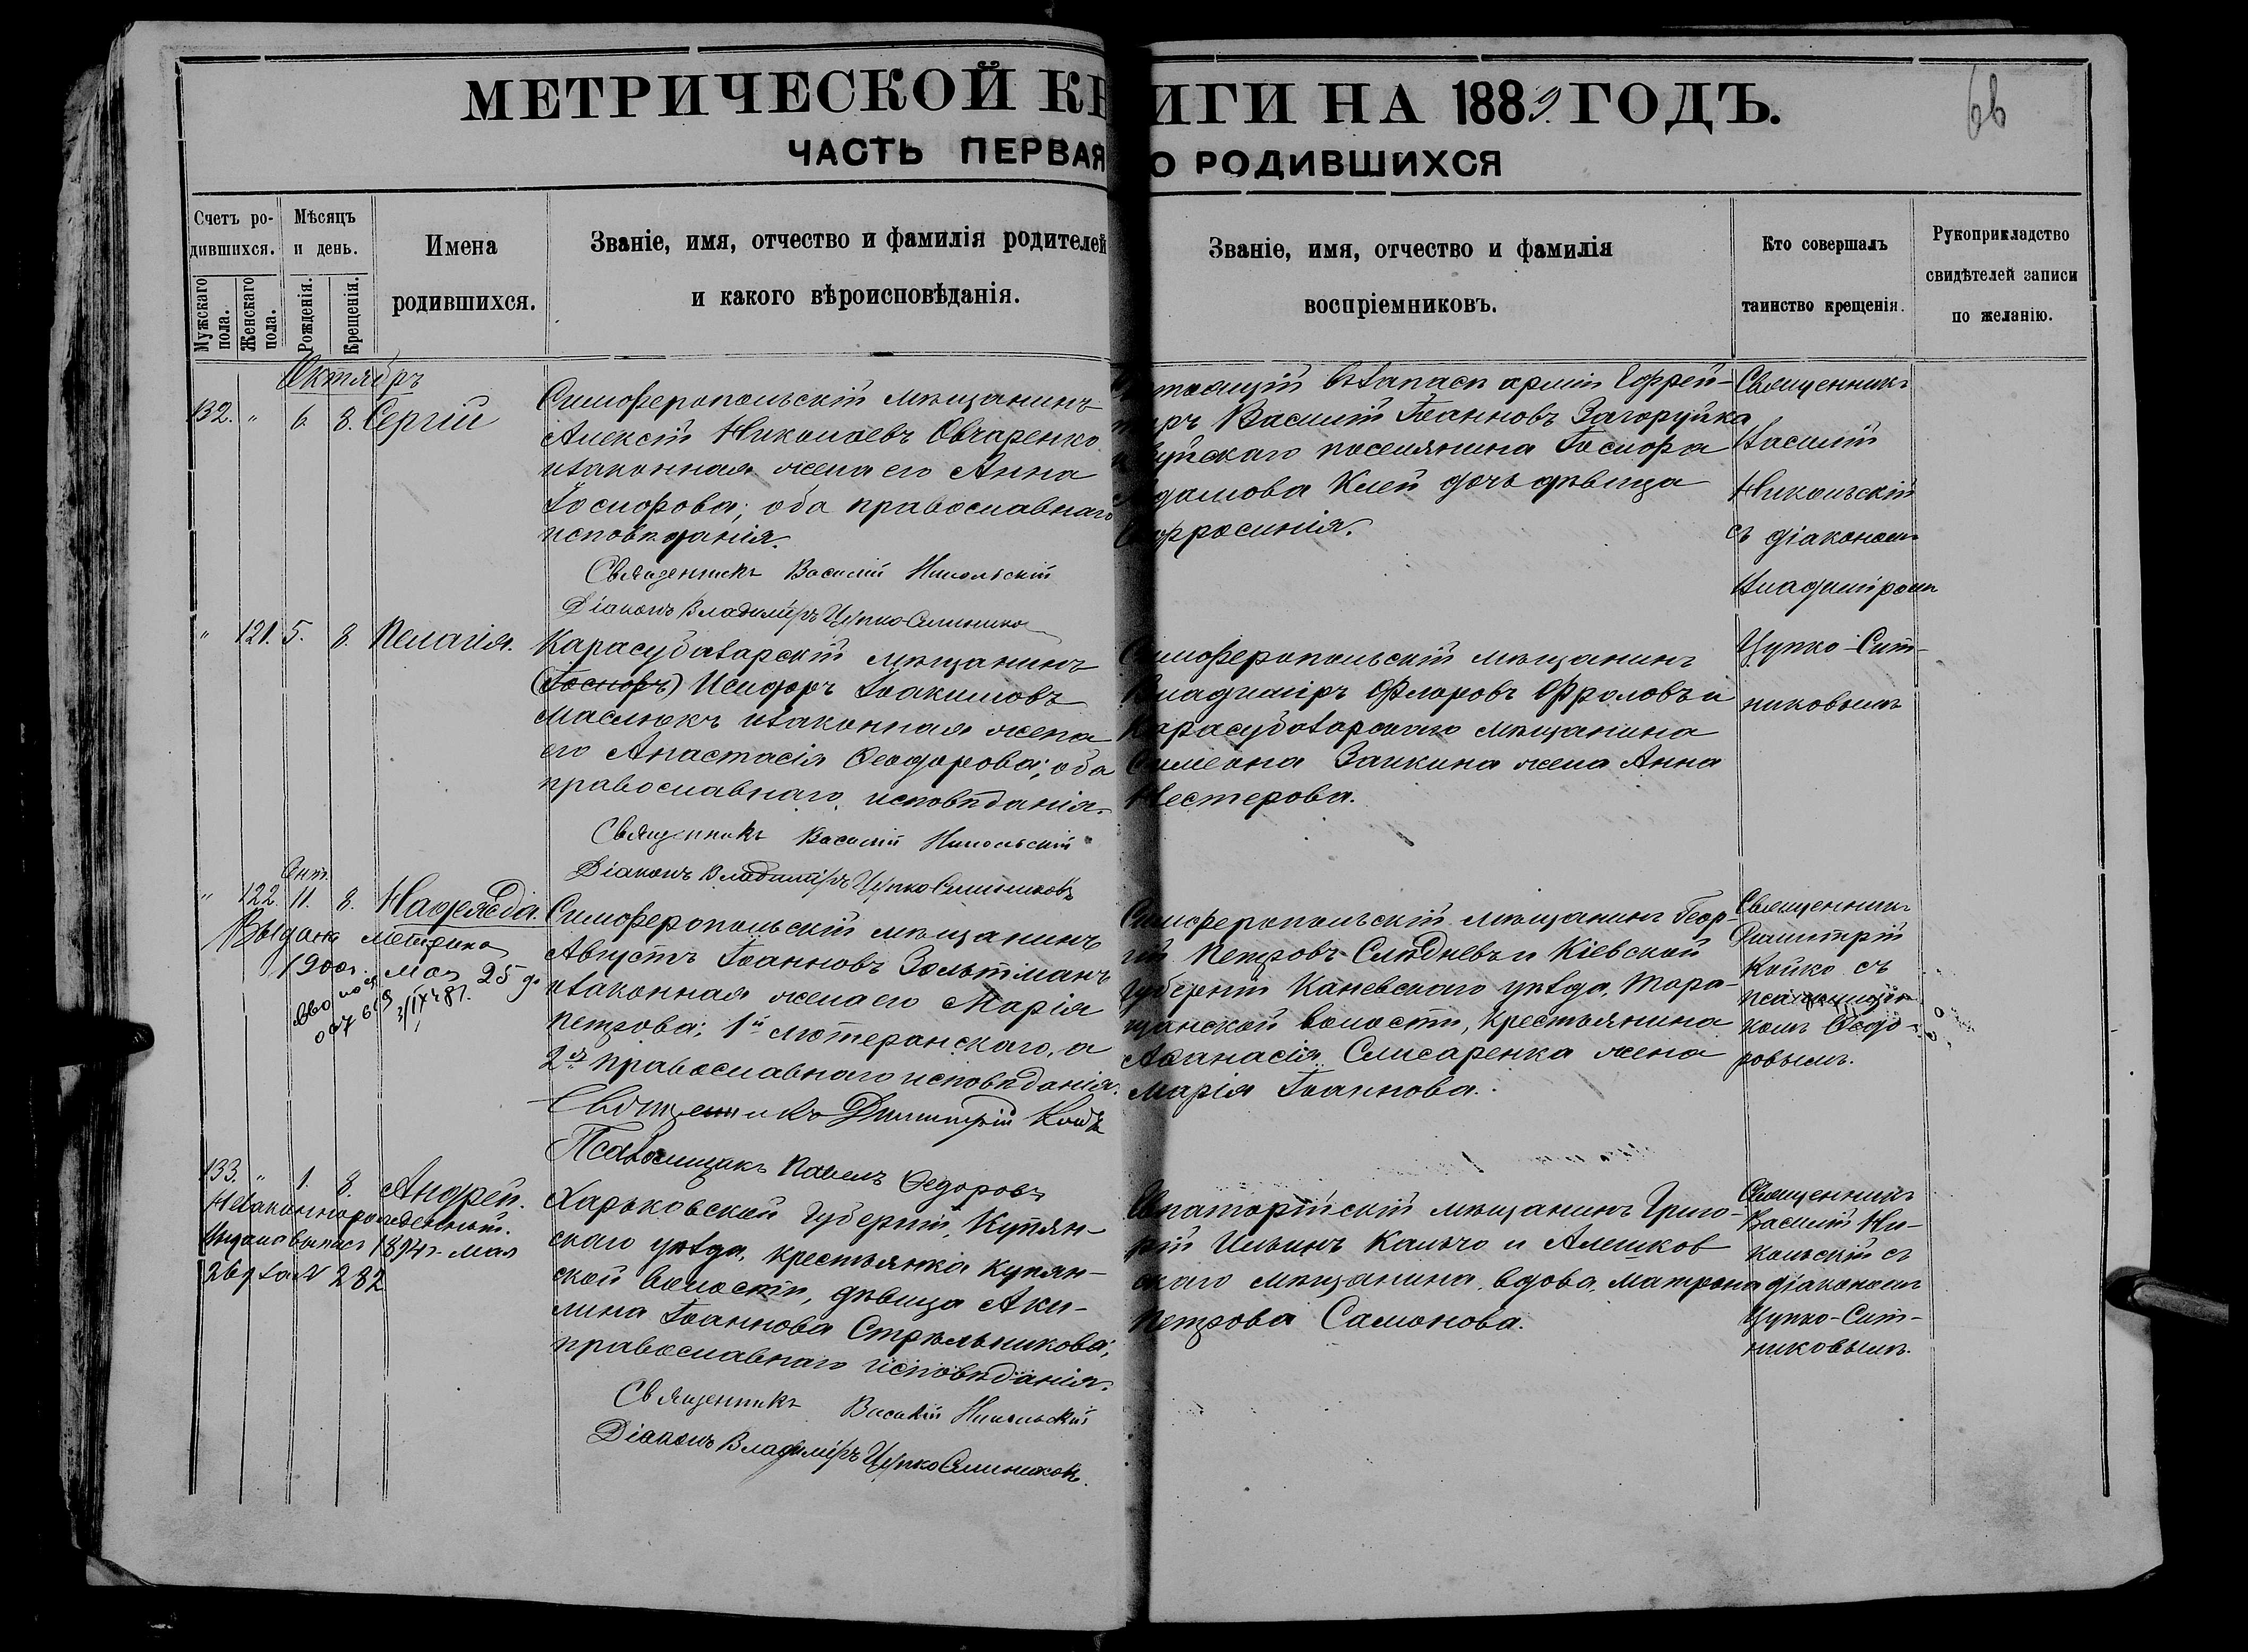 МЕТРИЧЕСКОЙ КНИГИ НА 1889 ГОДЪ.
66
ЧАСТЬ ПЕРВАЯ О РОДИВШИХСЯ
Счетъ родившихся.
Мужскаго пола.
Женскаго пола.
Мѣсяцъ и день.
Рожденія.
Крещенія.
Имена
родившихся.
Званіе, имя, отчество и фамилія родителей
и какого вѣроисповѣданія.
Званіе, имя, отчество и фамилія
воспріемниковъ.
Кто совершалъ
таинство крещенія.
Рукоприкладство
свидѣтелей записи
по желанію.
Октябрь
132. " 6. 8. Сергій
Симферопольскій мѣщанинъ
Алексій Николаевъ Овчаренко
и законная жена его Анна
Іосифова; оба православнаго
исповѣданія.
Священникъ Василій Никольскій
Діаконъ Владиміръ Цупко-Ситников
въ запасѣ арміи Ефрей-
Василій Іоанновъ Загоруйка
поселянина Іосифа
Клей дочь дѣвица
Священникъ
Василій
Никольскій
съ діакономъ
Владиміромъ
Цупко-Сит-
никовымъ
" 121. 5. 8. Пелагія.
Карасубазарскій мѣщанинъ
(Іосифъ) Исидоръ Іоакимовъ
Маслюкъ и законная жена
его Анастасія Ѳеодорова; оба
православнаго исповѣданія.
Священникъ Василій Никольскій
Діаконъ Владиміръ Цупко Ситниковъ
Симферопольскій мѣщанинъ
Владиміръ Флоровъ Фроловъ и
Карасубазарскаго мѣщанина
Симеона Заикина жена Анна
Нестерова.
" 122. 11. 8. Надежда.
Выдана метрика
1900г. мая 25 д.
Симферопольскій мѣщанинъ
Августъ Іоанновъ Зольтманъ
и законная жена его Марія
Петрова; 1й лютеранскаго, а
2я православнаго исповѣданія.
Священникъ Димитрій Койко
Псаломщикъ Павелъ Ѳедоровъ
Симферопольскій мѣщанинъ Геор-
гій Петровъ Слѣдневъ и Кіевской
Губерніи Каневскаго уѣзда, Тара-
щанской волости, крестьянина
Аѳанасія Слисаренка жена
Марія Іоаннова.
Священникъ
Димитрій
Койко съ
псаломщи-
комъ Ѳедо-
ровымъ.
133. " 1. 8. Андрей.
Незаконнорожденный.
Выдана выпись 1894г. мая
26 д. за № 282
Харьковской Губерніи, Купян-
скаго уѣзда, крестьянка Купян-
ской волости, дѣвица Аки-
лина Іоаннова Стрѣльникова;
православнаго исповѣданія.
Священникъ Василій Никольскій
Діаконъ Владиміръ Цупко Ситниковъ.
Евпаторійскій мѣщанинъ Григо-
рій Ильинъ Кальчо и Алешков
скаго мѣщанина вдова Матрона
Петрова Самонова.
Священникъ
Василій Ни-
кольскій съ
діакономъ
Цупко-Сит-
никовымъ.